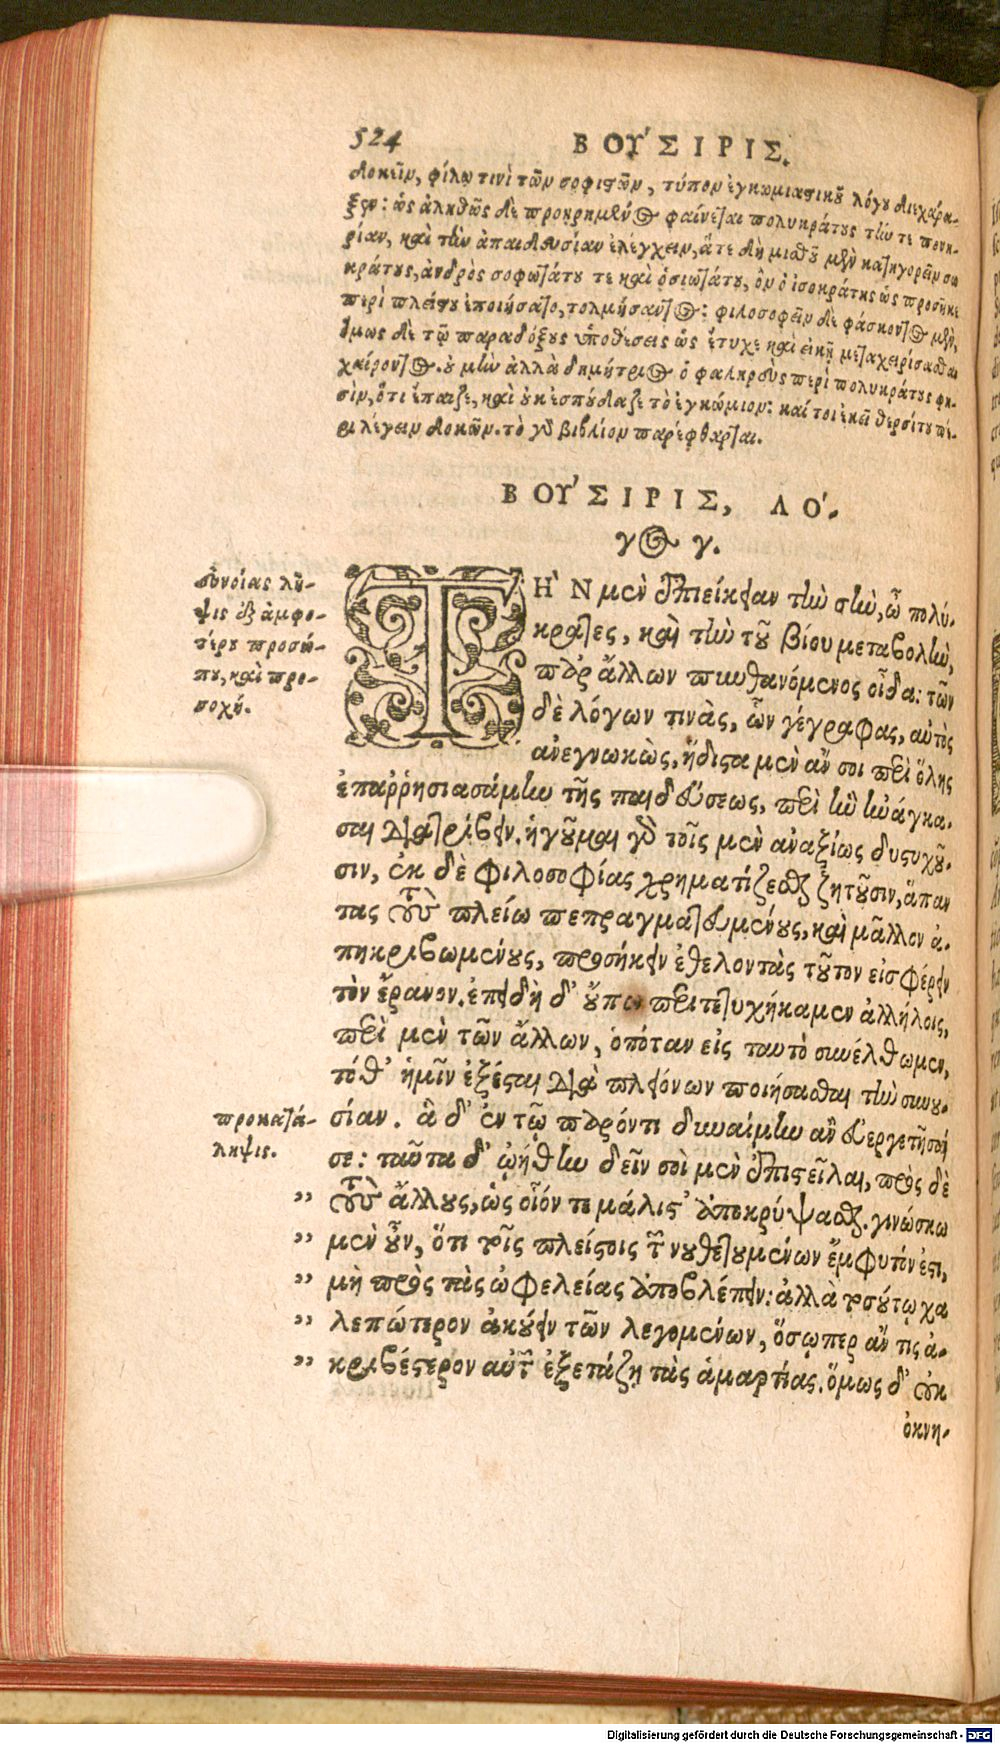 524
ΒΟΎΣΙΡΙΣ.
δοκεῖν, φίλῳ τινὶ τῶν σοφιστῶν, τύπον ἐγκωμιαστικοῦ λόγου διεχάρα-
ξεν: ὡς ἀληθῶς δὲ προῃρημένος φαίνεται πολυκράτους τήν τε πονη-
ρίαν, καὶ τὴν ἀπαιδευσίαν ἐλέγχειν, ἅτε δὴ μισθοῦ μὲν κατηγορεῖν σω
κράτους, ἀνδρὸς σοφωτάτου τε καὶ ὁσιωτάτου, ὃν ὁ ἰσοκράτης ὡς προσῆκε
περὶ πλείστου ἐποιήσατο, τολμήσαντος: φιλοσοφεῖν δὲ φάσκοντος μὲν,
ὅμως δὲ τῷ παραδόξους ὑποθέσεις ὡς ἔτυχε καὶ εἰκῆ μεταχειρίσασθαι
χαίροντος. οὐ μὴν ἀλλὰ δημήτριος ὁ φαληρεὺς περὶ πολυκράτους φη-
σὶν, ὅτι ἔπαιζε, καὶ οὐκ ἐσπούδαζε τὸ ἐγκώμιον: καί τοι ἐκεῖ θερσίτου πέ-
ρι λέγειν δοκῶν. τὸ γὰρ βιβλίον παρέφθαρται.
ΒΟΎΣΙΡΙΣ, ΛΌ-
γος γ.
εὐνοίας λῆ-
ψις ἐξ ἀμφο-
τέρου προσώ-
που, καὶ προ-
σοχή.
ΤῊΝ μὲν ἐπιείκειαν τὴν σὴν, ὦ πολύ-
κρατες, καὶ τὴν τοῦ βίου μεταβολὴν,
παρ' ἄλλων πυνθανόμενος οἶδα: τῶν
δὲ λόγων τινὰς, ὧν γέγραφας, αὐτὸς
ἀνεγνωκὼς, ἥδιστα μὲν ἄν σοι περὶ ὅλης
ἐπαῤῥησιασάμην τῆς παιδεύσεως, περὶ ἣν ἠνάγκα-
σαι διατρίβειν. ἡγοῦμαι γὰρ τοῖς μὲν ἀναξίως δυστυχοῦ-
σιν, ἐκ δὲ φιλοσοφίας χρηματίζεσθαι ζητοῦσιν, ἅπαν
τας τοὺς πλείω πεπραγματευμένους, καὶ μᾶλλον ἀ-
πηκριβωμένους, προσήκειν ἐθελοντὰς τοῦτον εἰσφέρειν
τὸν ἔρανον. ἐπειδὴ δ' οὔπω περιτετυχήκαμεν ἀλλήλοις,
περὶ μὲν τῶν ἄλλων, ὁπόταν εἰς ταυτὸ συνέλθωμεν,
τόθ' ἡμῖν ἐξέσται διὰ πλειόνων ποιήσασθαι τὴν συνου-
προκατά-
ληψις.
σίαν. ἃ δ' ἐν τῷ παρόντι δυναίμην ἂν εὐεργετῆσαί
σε: ταῦτα δ' ᾠήθην δεῖν σοὶ μὲν ἐπιστεῖλαι, πρὸς δὲ
" τοὺς ἄλλους, ὡς οἷόν τε μάλιστ' ἀποκρύψασθαι. γινώσκω
" μὲν οὖν, ὅτι τοῖς πλείστοις τῶν νουθετουμένων ἔμφυτόν ἐστι,
" μὴ πρὸς τὰς ὠφελείας ἀποβλέπειν: ἀλλὰ τοσούτῳ χα
" λεπώτερον ἀκούειν τῶν λεγομένων, ὅσῳπερ ἄν τις ἀ-
" κριβέστερον αὐτῶν ἐξετάζῃ τὰς ἁμαρτίας. ὅμως δ' οὐκ
ὀκνη-
Digitalisierung gefördert durch die Deutsche Forschungsgemeinschaft - DFG